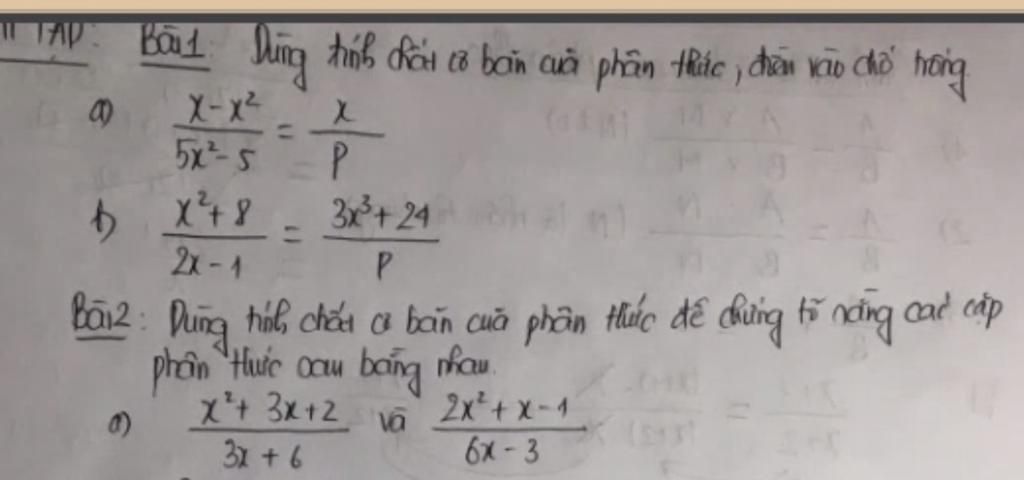 II TẬP: Bài 1: Dùng tính chất cơ bản của phân thức, điền vào chỗ trống
a) (x-x²)/(5x²-5) = x/P
b) (x²+8)/(2x-1) = (3x³+24)/P
Bài 2: Dùng tính chất cơ bản của phân thức để chứng tỏ rằng các cặp
phân thức sau bằng nhau.
a) (x²+3x+2)/(3x+6) và (2x²+x-1)/(6x-3)